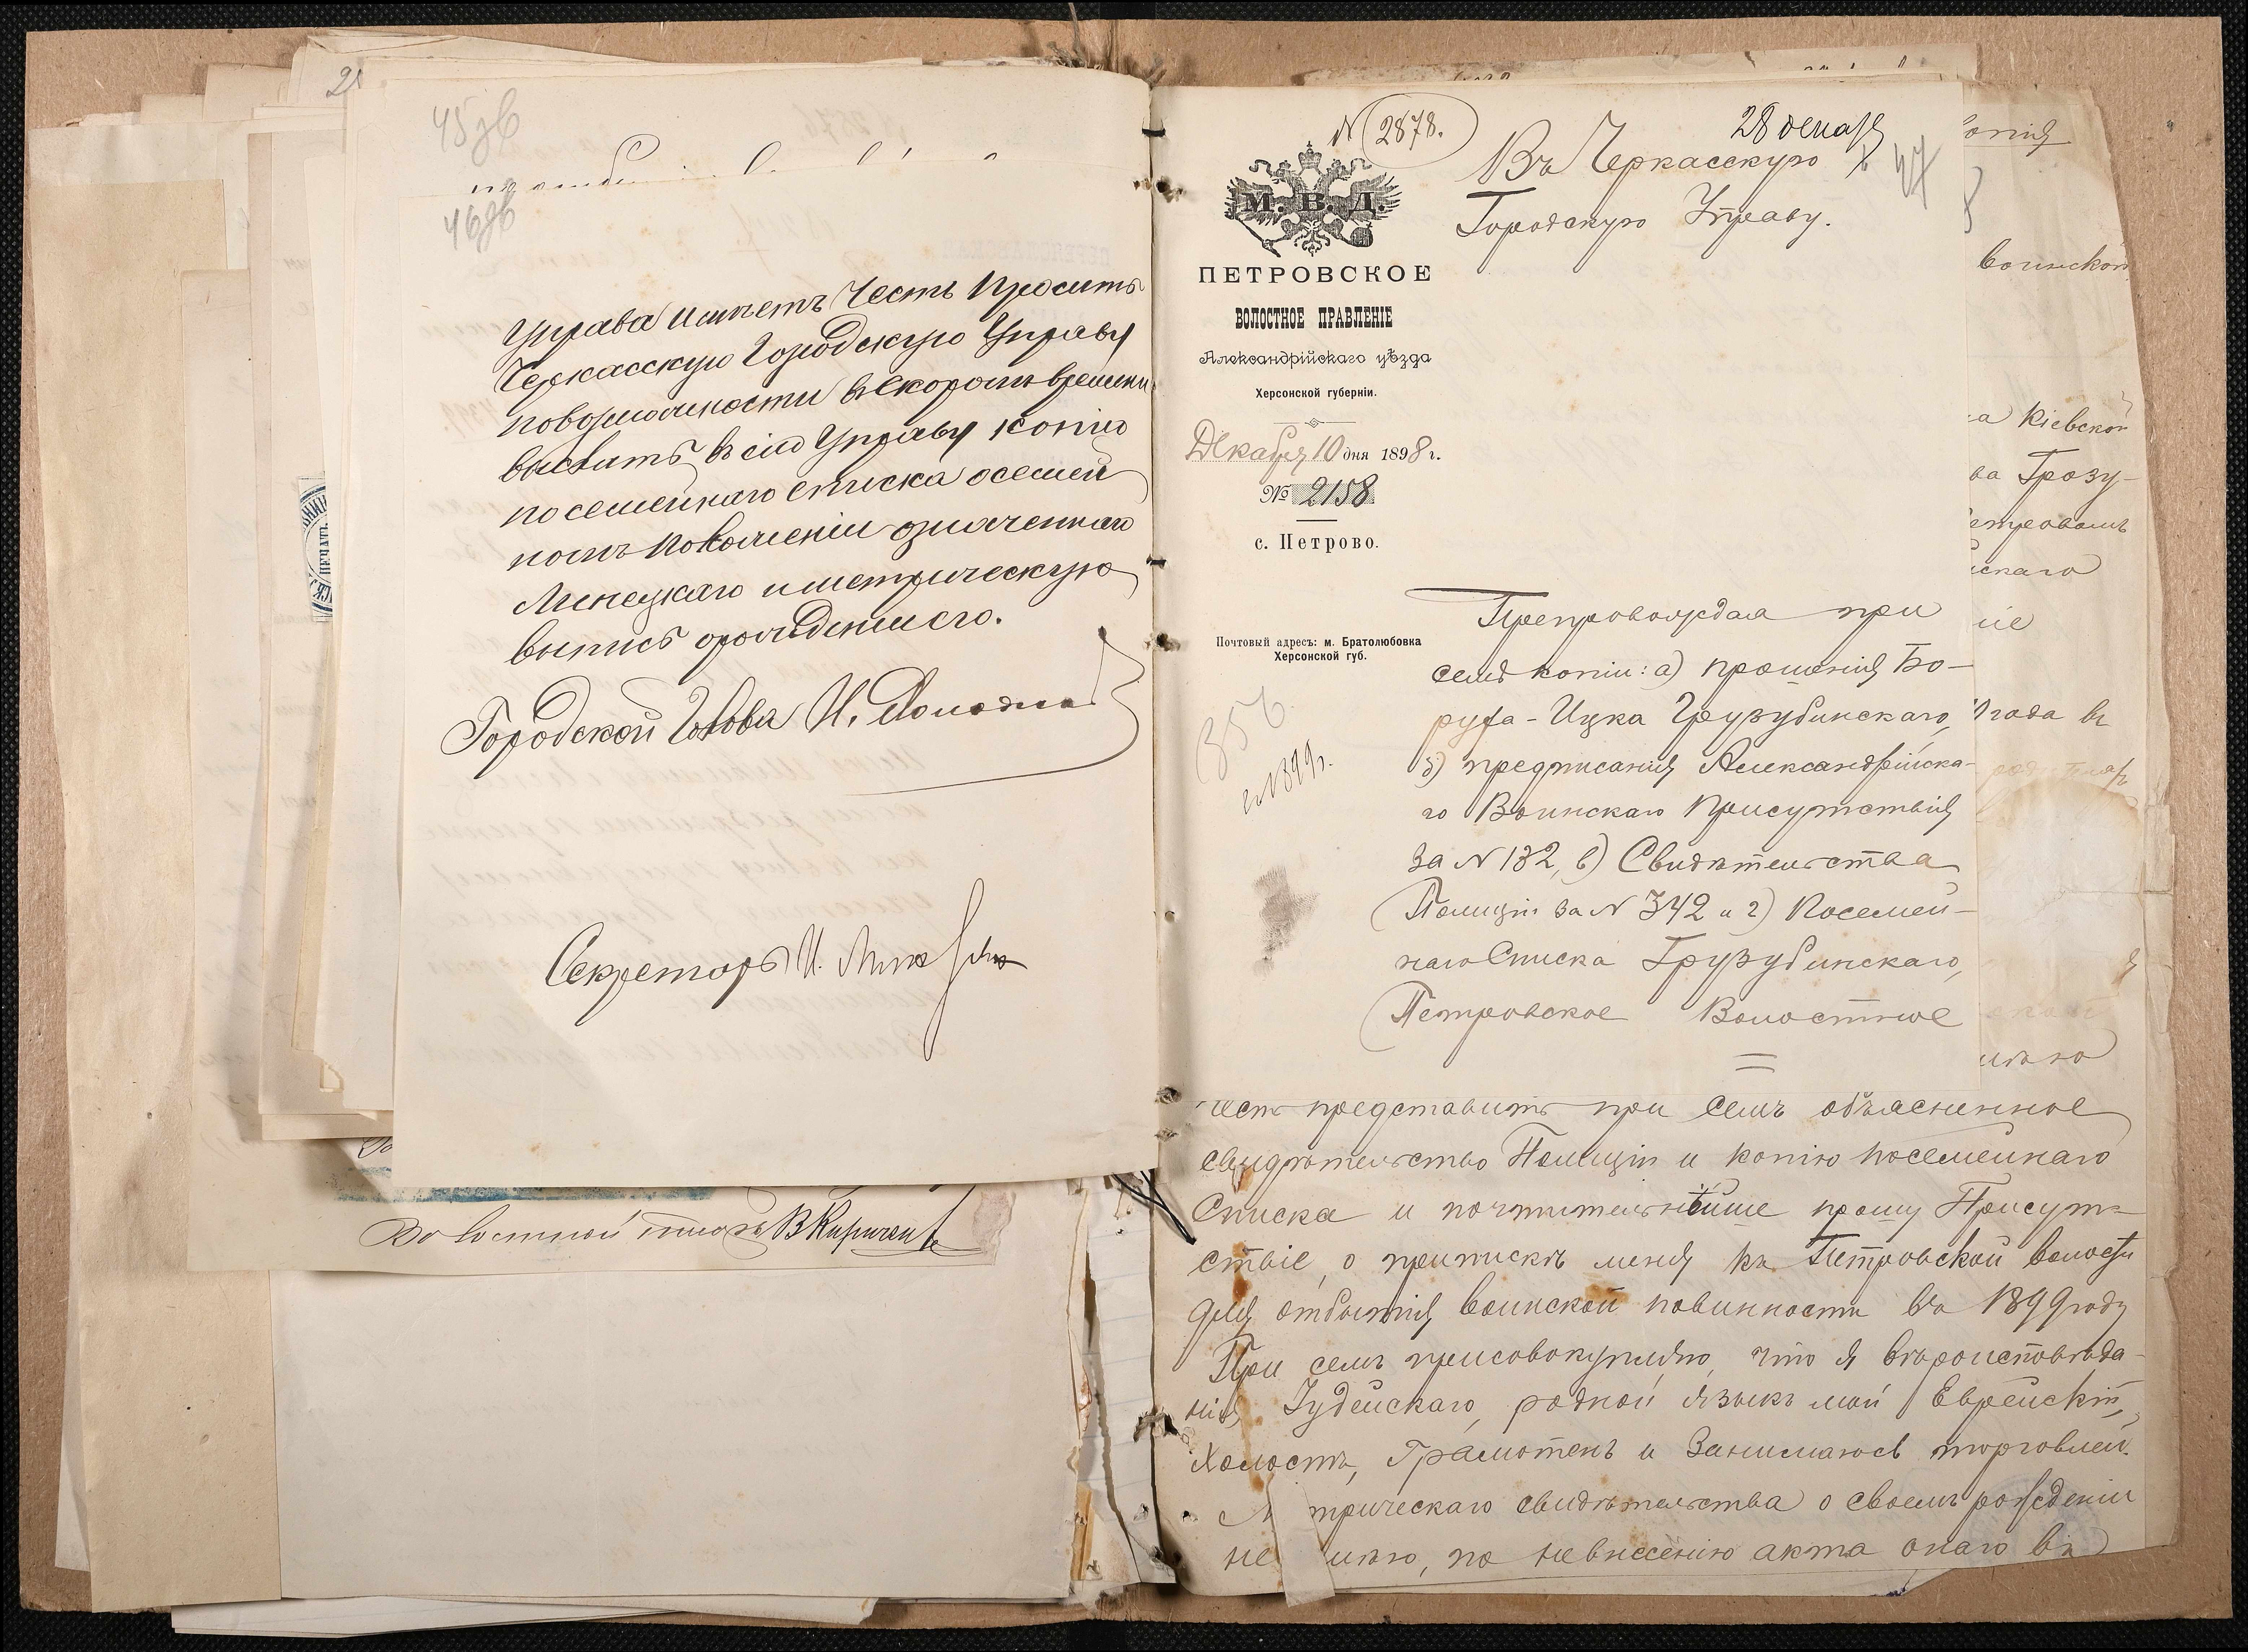 45 об
46 об
Управа имѣетъ честь просить
Черкасскую Городскую Управу
по возможности въ скоромъ времени
выслать въ сію Управу копію
посемейнаго списка о семей
номъ положеніи означеннаго
Линецкаго и метрическую
выпись о рожденіи его.
Городской Голова И.
Секретарь И.
Волостной В Кириченко
N 2878.
28 декабря
Въ Черкасскую
Городскую Управу.
47
М. В. Д.
ПЕТРОВСКОЕ
ВОЛОСТНОЕ ПРАВЛЕНІЕ
Александрійскаго уѣзда
Херсонской губерніи.
Декабря 10 дня 1898 г.
№ 2158
с. Петрово.
Почтовый адресъ: м. Братолюбовка
Херсонской губ.
1899 г.
Препровождая при
семъ копіи: а) прошенія Бо-
руха-Ицка Грузубинскаго,
б) предписанія Александрійска-
го Воинскаго Присутствія
за N 132, в) Свидѣтельства
Полиціи за N 342 и г) Посемей-
наго Списка Грузубинскаго,
Петровское Волостное
=
копія
воинской
а Кіевской
ва Грозу-
етровомъ
скаго
ніе
года въ
имѣю
честь представить при семъ объясненное
свидѣтельство Полиціи и копію посемейнаго
Списка и почтительнѣйше прошу Присут-
ствіе, о припискѣ меня къ Петровской волости
для отбытія воинской повинности въ 1899 году
При семъ присовокупляю, что я вѣроисповѣда-
нія Іудейскаго, родной языкъ мой Еврейскій,
Холостъ, Грамотенъ и Занимаюсь торговлей.
М трическаго свидѣтельства о своемъ рожденіи
не имѣю, по невнесенію акта онаго въ